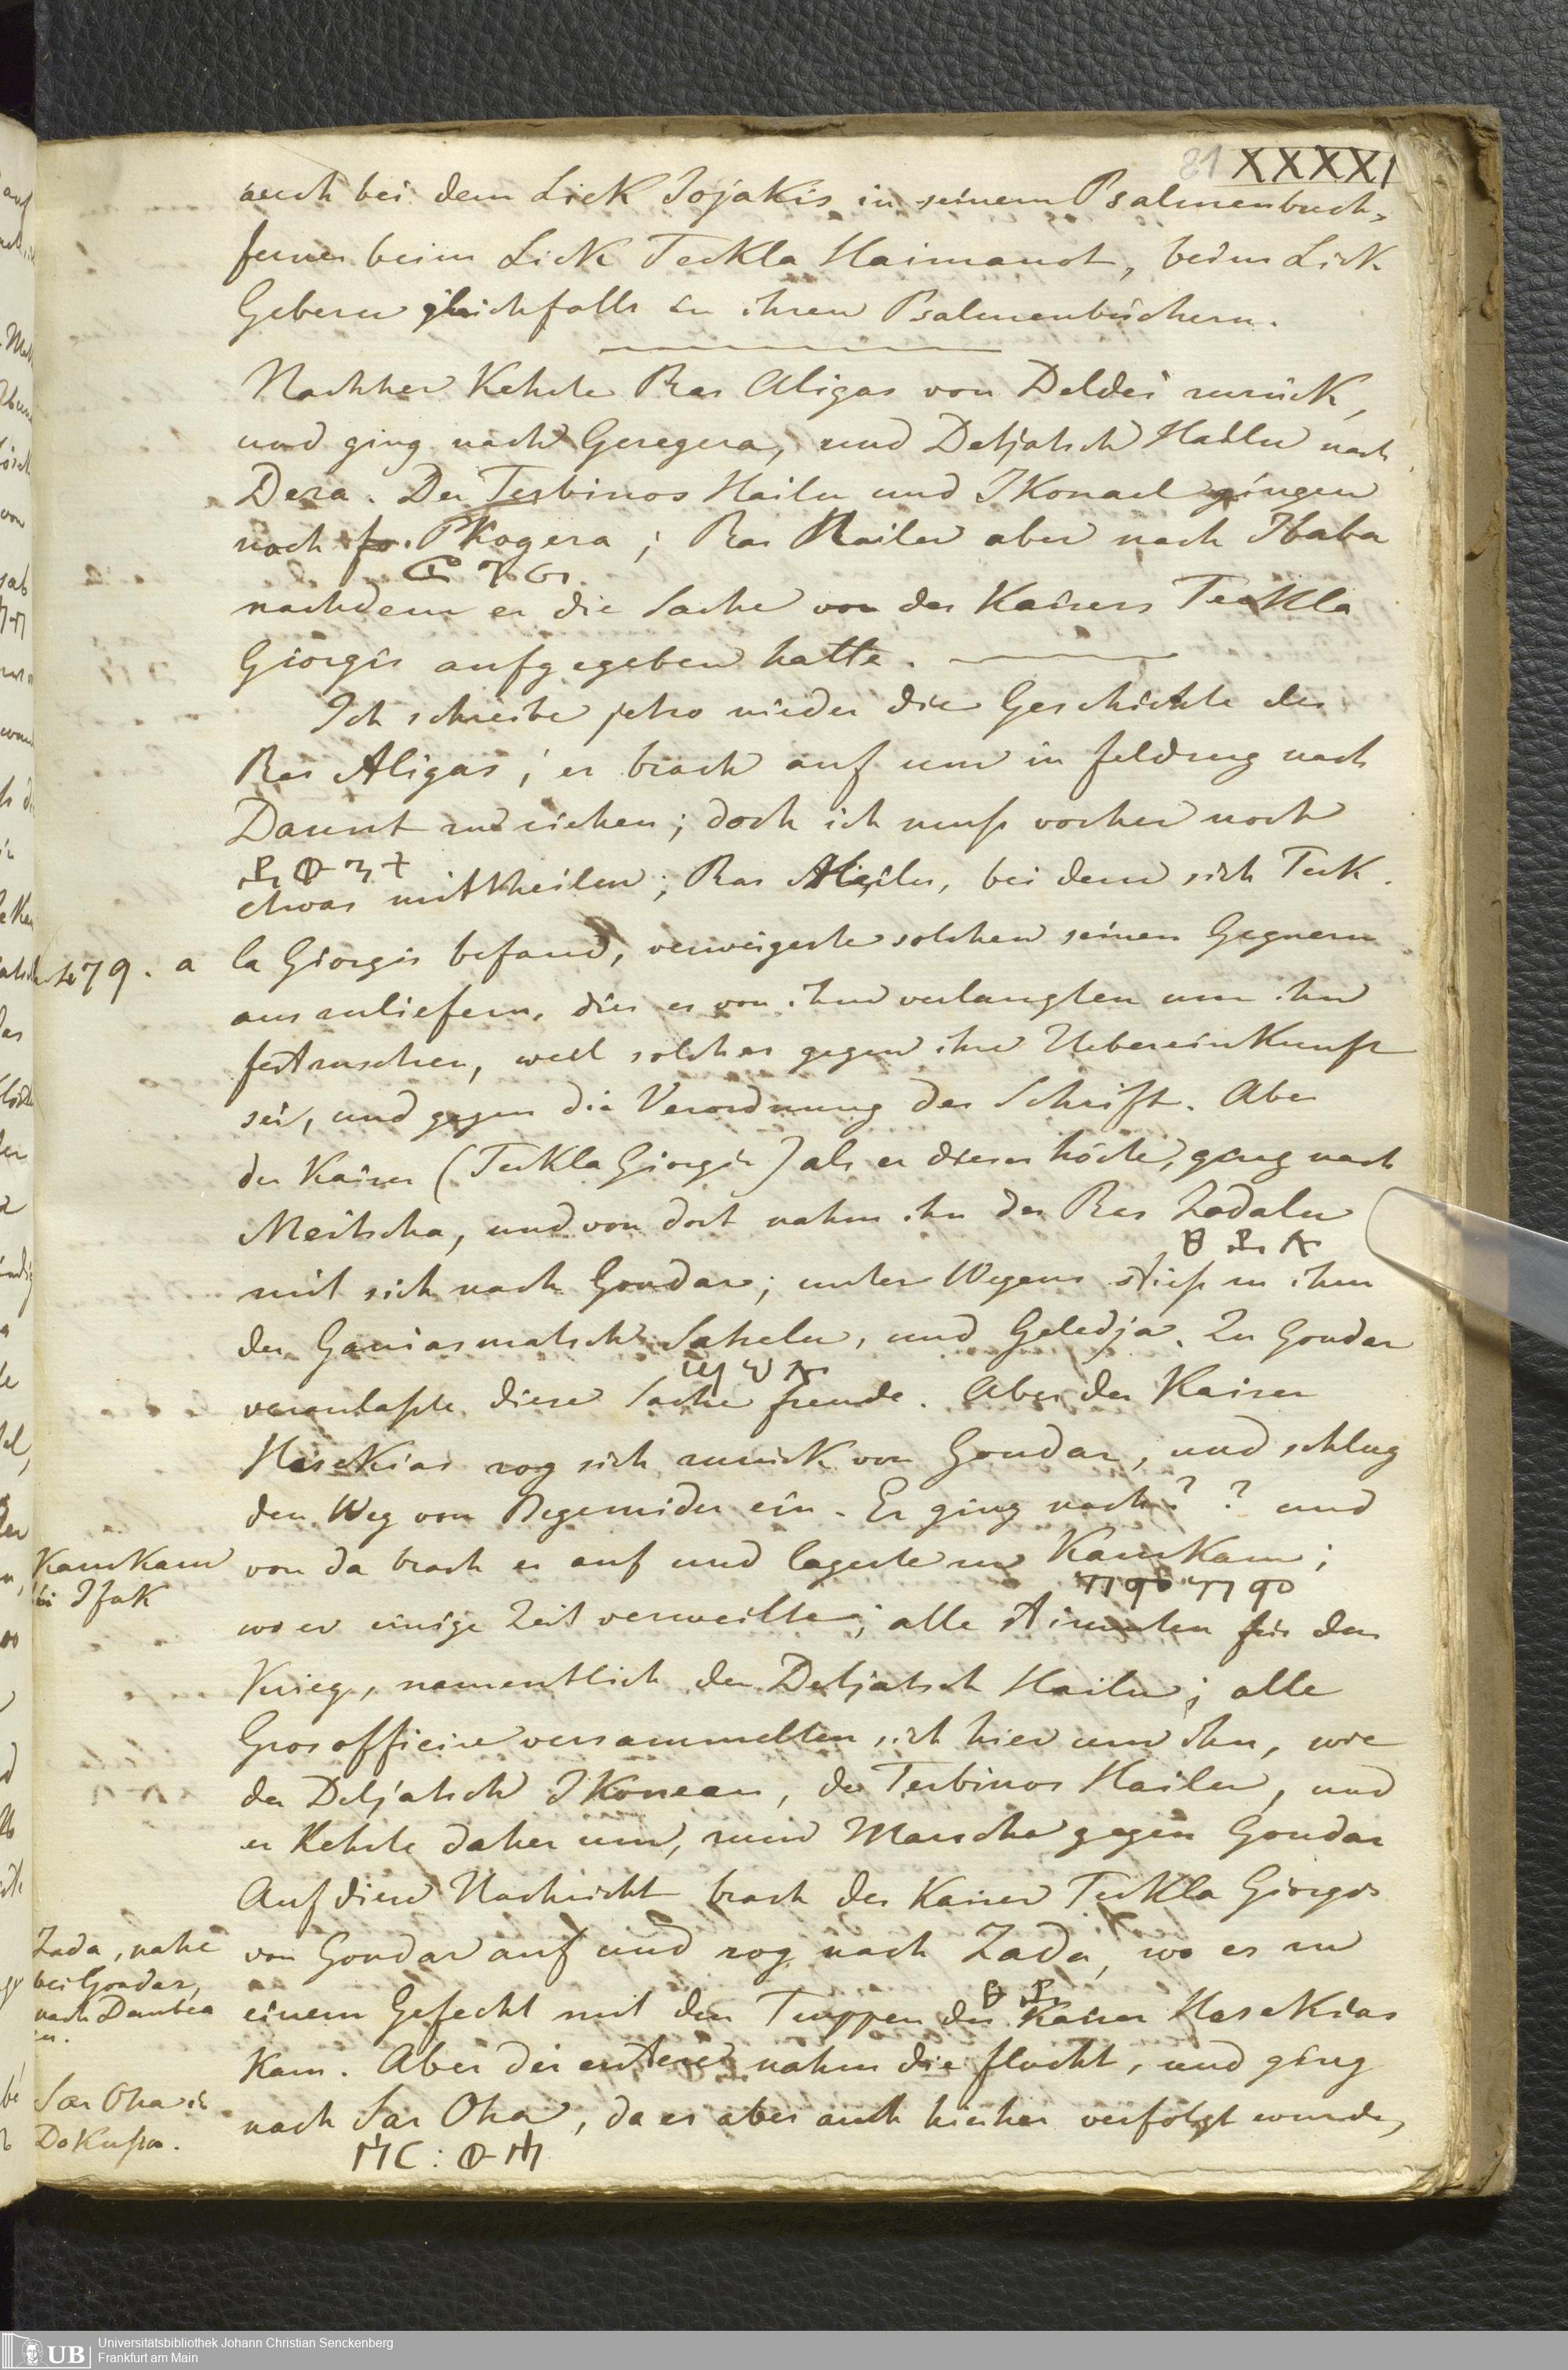 81 XXXXI
auch bei dem Lick Jojakis in seinem Psalmenbuch,
ferner beim Lick Teckla Haimanot, beim Lick
Geberu gleichfalls in ihren Psalmenbüchern.
Nachher kehrte Ras Aligas von Deldei zurück,
und ging nach Geregera, und Detjatsch Hailu nach
Dera. Der Terbinos Hailu und Ikonael gingen
nach Fogera; Ras Hailu aber nach Ibaba
ፎገራ
nachdem er die Sache von des Kaisers Teckla
Giorgis aufgegeben hatte.
Ich schreibe jetzo nieder die Geschichte des
Ras Aligas; er brach auf um in Feldzug nach
Daunt zu ziehen; doch ich muss vorher noch
ዳውንት
etwas mittheilen; Ras Hailu, bei dem sich Teck
79. a
la Giorgis befand, verweigerte solchen seinen Gegnern
auszuliefern, die es von ihm verlangten um ihn
festzusetzen, weil solches gegen ihre Uebereinkunft
sei, und gegen die Verordnung der Schrift. Aber
der Kaiser (Teckla Giorgis) als er dieses hörte, ging nach
Meitscha, und von dort nahm ihn der Ras Zadalu
ፀዳሉ
mit sich nach Gondar; unter Wegens stiess zu ihm
der Ganiasmatsch Sahelu, und Geledja. In Gondar
ሣህሉ
veranlasste diese Sache Freude. Aber der Kaiser
Hesekias zog sich zurück von Gondar, und schlug
den Weg von Begemider ein. Er ging nach ? ? und
von da brach er auf und lagerte zu Kamkam;
ካምካም
Kamkam
bei Ifak
wo er einige Zeit verweilte; alle stimmten für den
Krieg, namentlich der Detjatsch Hailu; alle
Grosofficire versammelten sich hier um ihn, wie
der Detjatsch Ikonean, der Terbinos Hailu, und
er kehrte daher um, zum Marsche gegen Gondar
Auf diese Nachricht brach der Kaiser Teckla Giorgis
von Gondar auf und zog nach Zada, wo es zu
ፀዳ
Zada, nahe
bei Gondar,
nach Dambea
zu.
einem Gefecht mit den Truppen des Kaiser Hesekias
kam. Aber der erstere nahm die Flucht, und ging
nach Sar Oha, da er aber auch hierher verfolgt wurde,
ሣር : ውሃ
Sar Oha in
Universitätsbibliothek Johann Christian Senckenberg
Frankfurt am Main